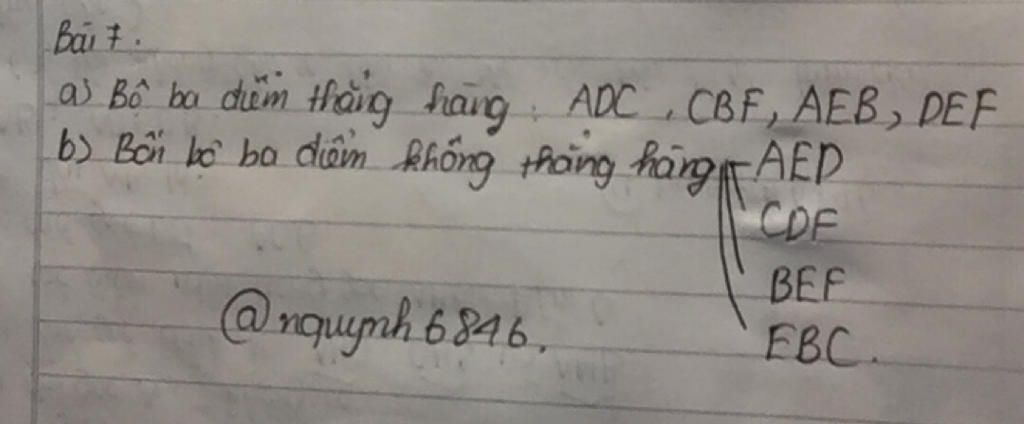 Bài 7.
a) Bộ ba điểm thẳng hàng: ADC, CBF, AEB, DEF
b) Bốn bộ ba điểm không thẳng hàng AED
CDF
BEF
EBC.
@nquynh6846.